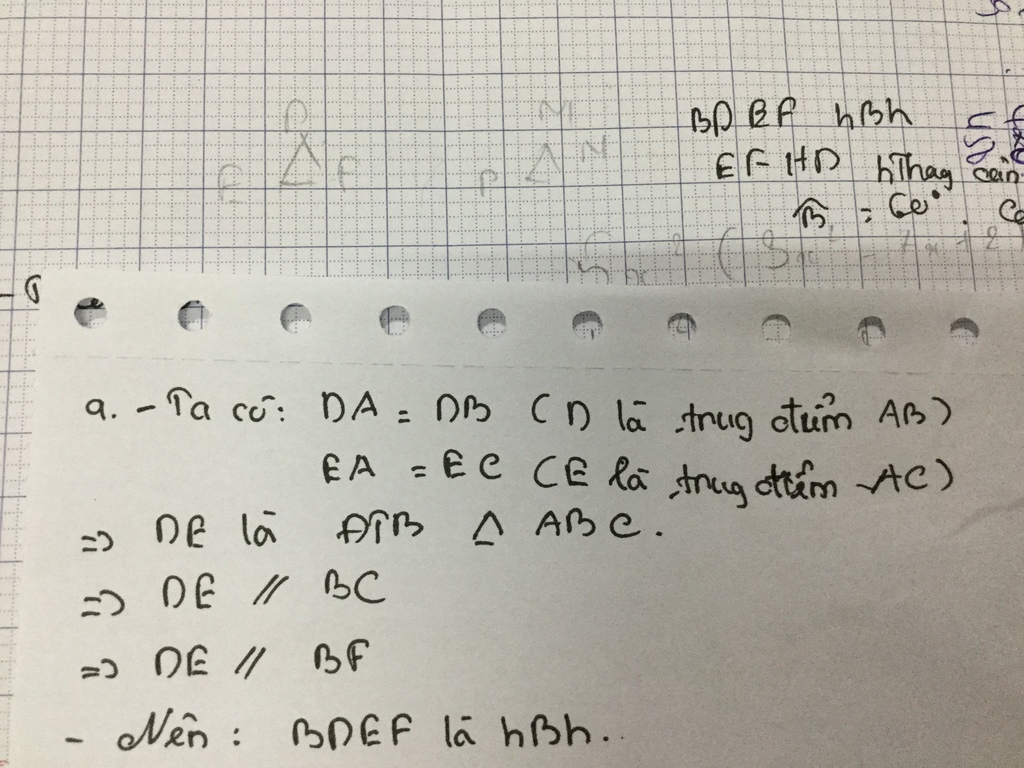 BDEF hBh
EFHD hThag cân
B̂ =
D
E F
M
P N
a. - Ta có: DA = DB (D là trug điểm AB)
EA = EC (E là trug điểm AC)
=> DE là ĐTB Δ ABC.
=> DE // BC
=> DE // BF
- Nên: BDEF là hBh..